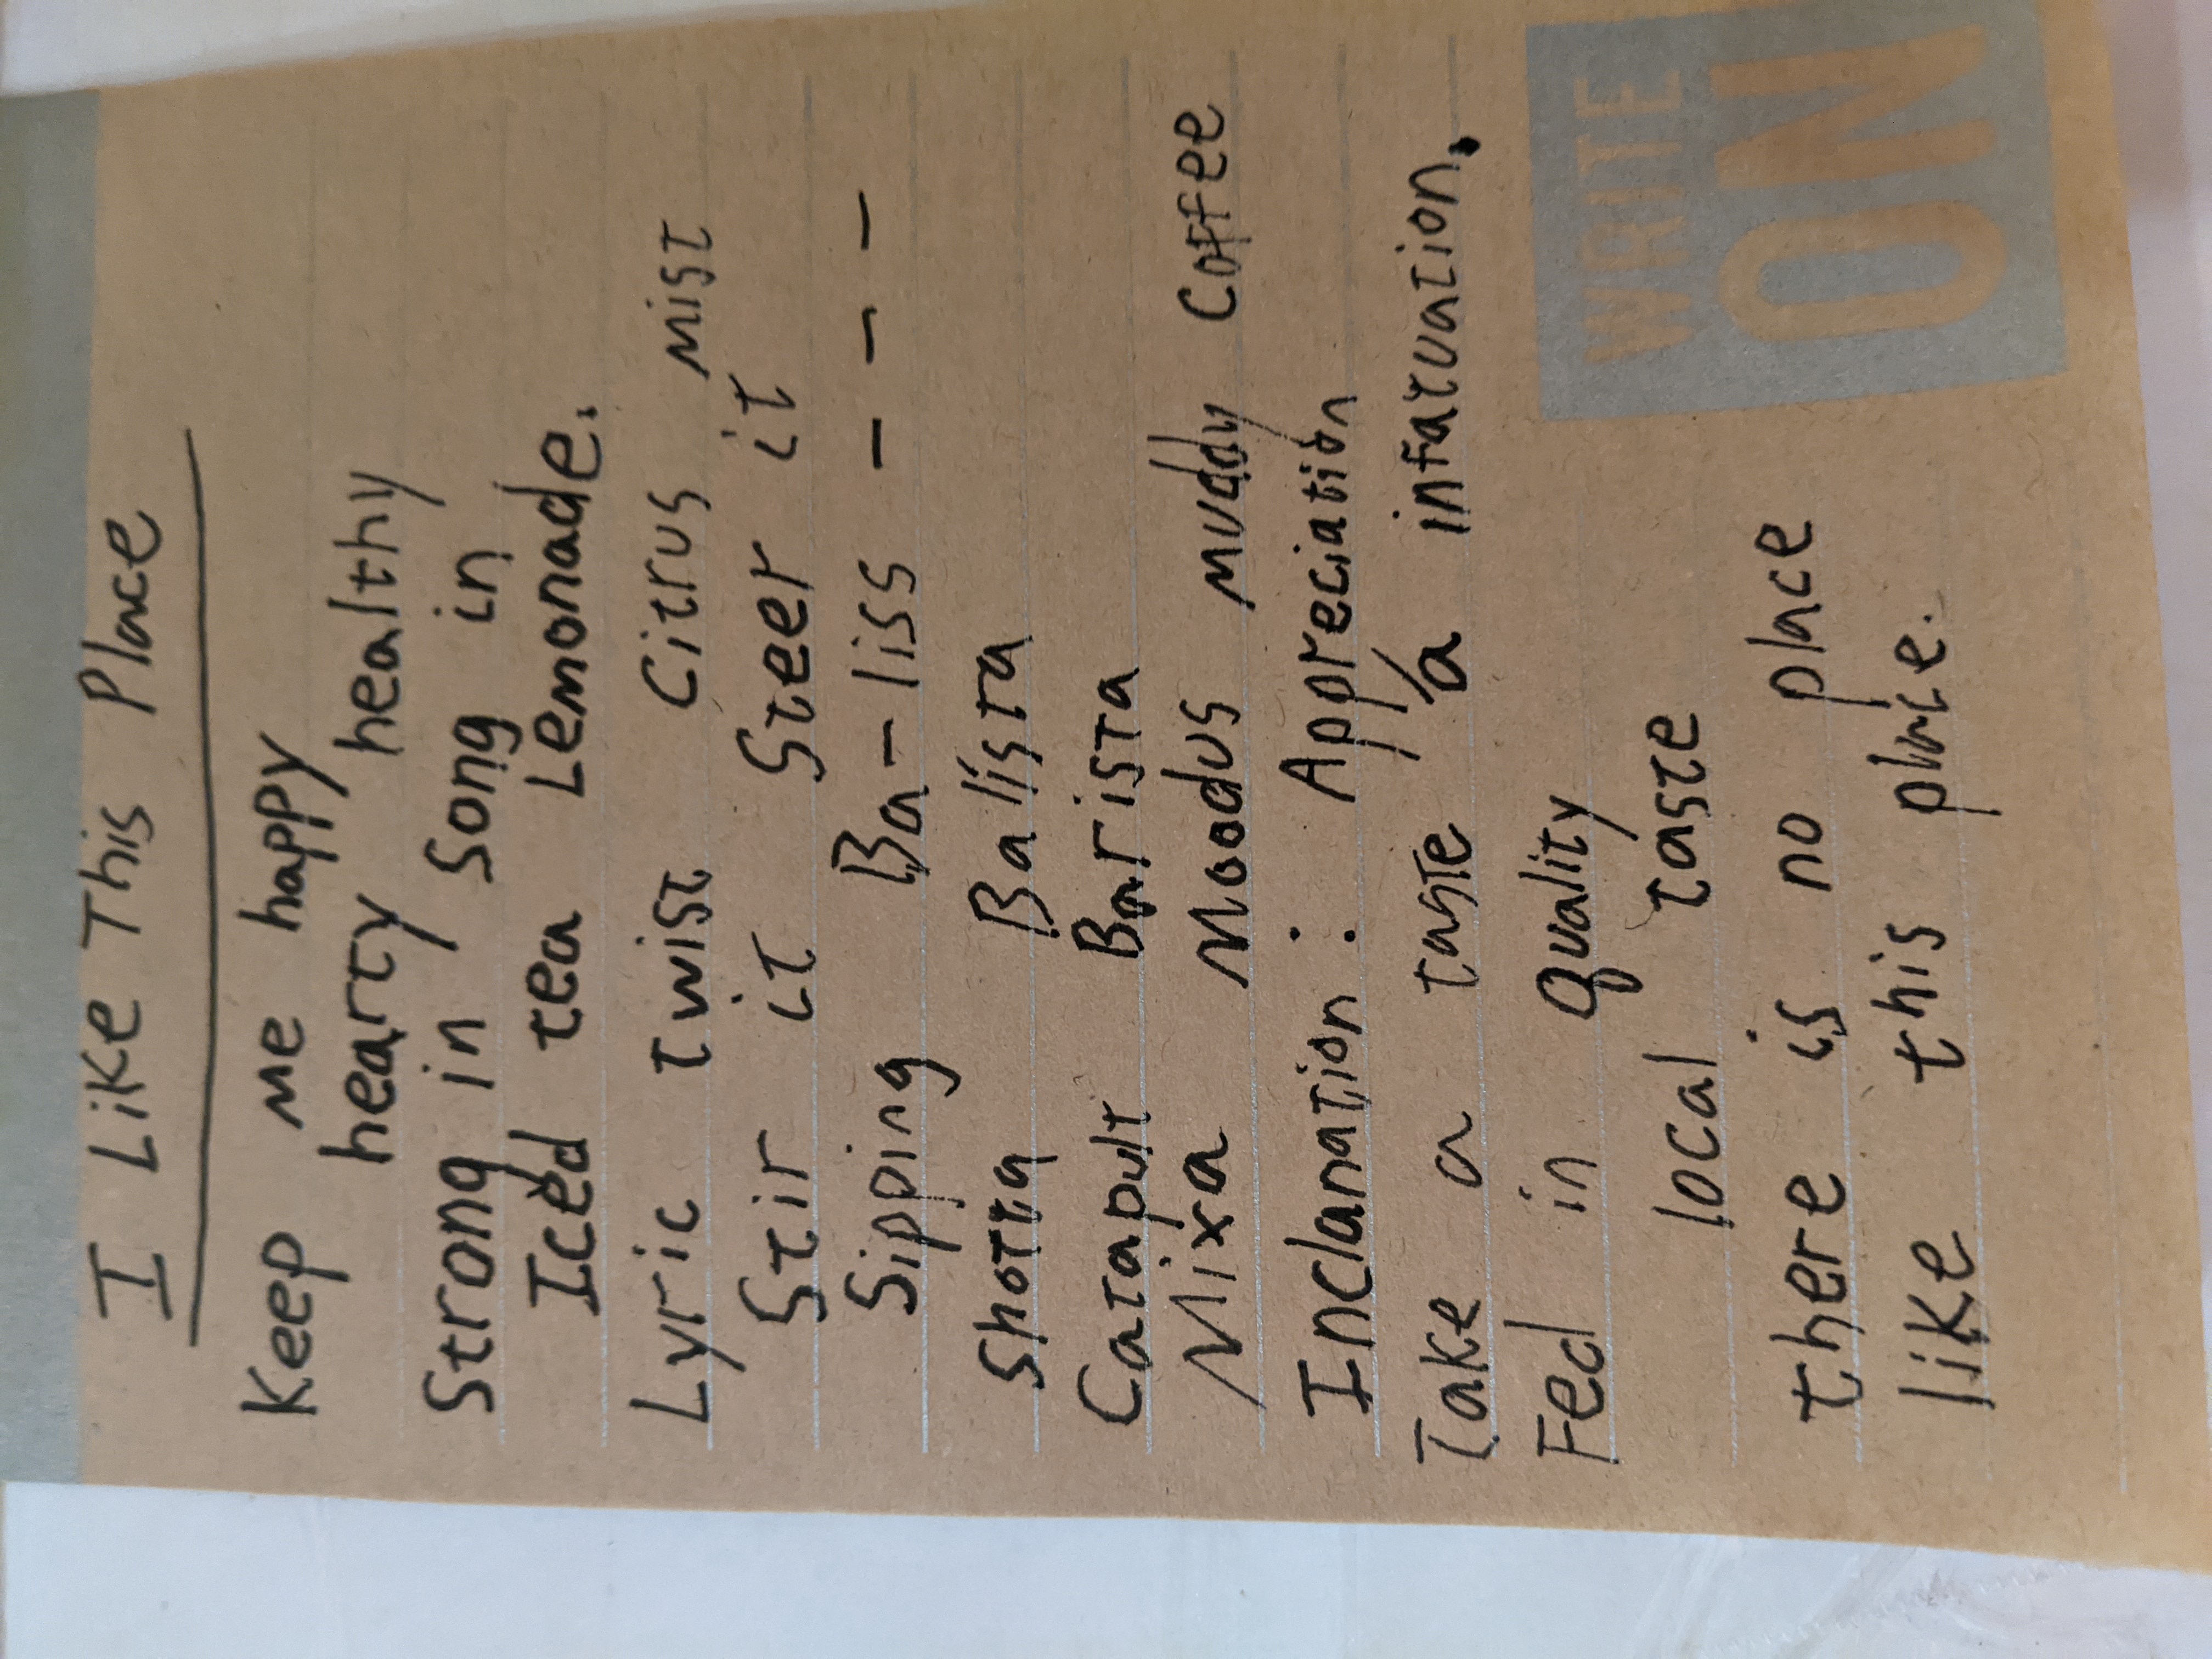 I Like This Place
Keep me happy
hearty healthy
Strong in Song in
Iced tea Lemonade.
Lyric twist Citrus mist
Stir it Steer it
Sipping Ba-liss - - -
Shotta Balista
Catapult Barista
Mixa Moodus muddy Coffee
Inclanation: Appreciation
Take a taste /a infatuation.
Fed in quality
local taste
there is no place
like this place.
WRITE
ON